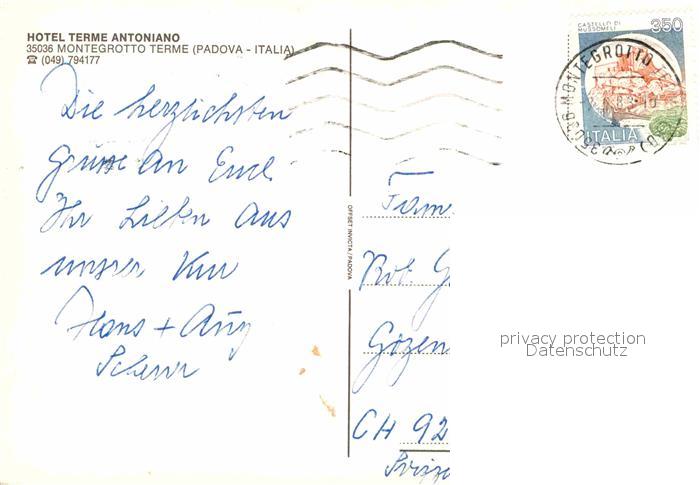 HOTEL TERME ANTONIANO
35036 MONTEGROTTO TERME (PADOVA - ITALIA)
☎ (049) 794177
Die herzlichsten
Grüsse an Euch
Ihr Lieben aus
unserer Kur
Hans +
OFFSET INVICTA/PADOVA
CASTELLO DI
MUSSOMELI
350
ITALIA
35036 MONTEGROTTO
Fam.
Rob. G
Gözen
CH 92
Svizze
privacy protection
Datenschutz